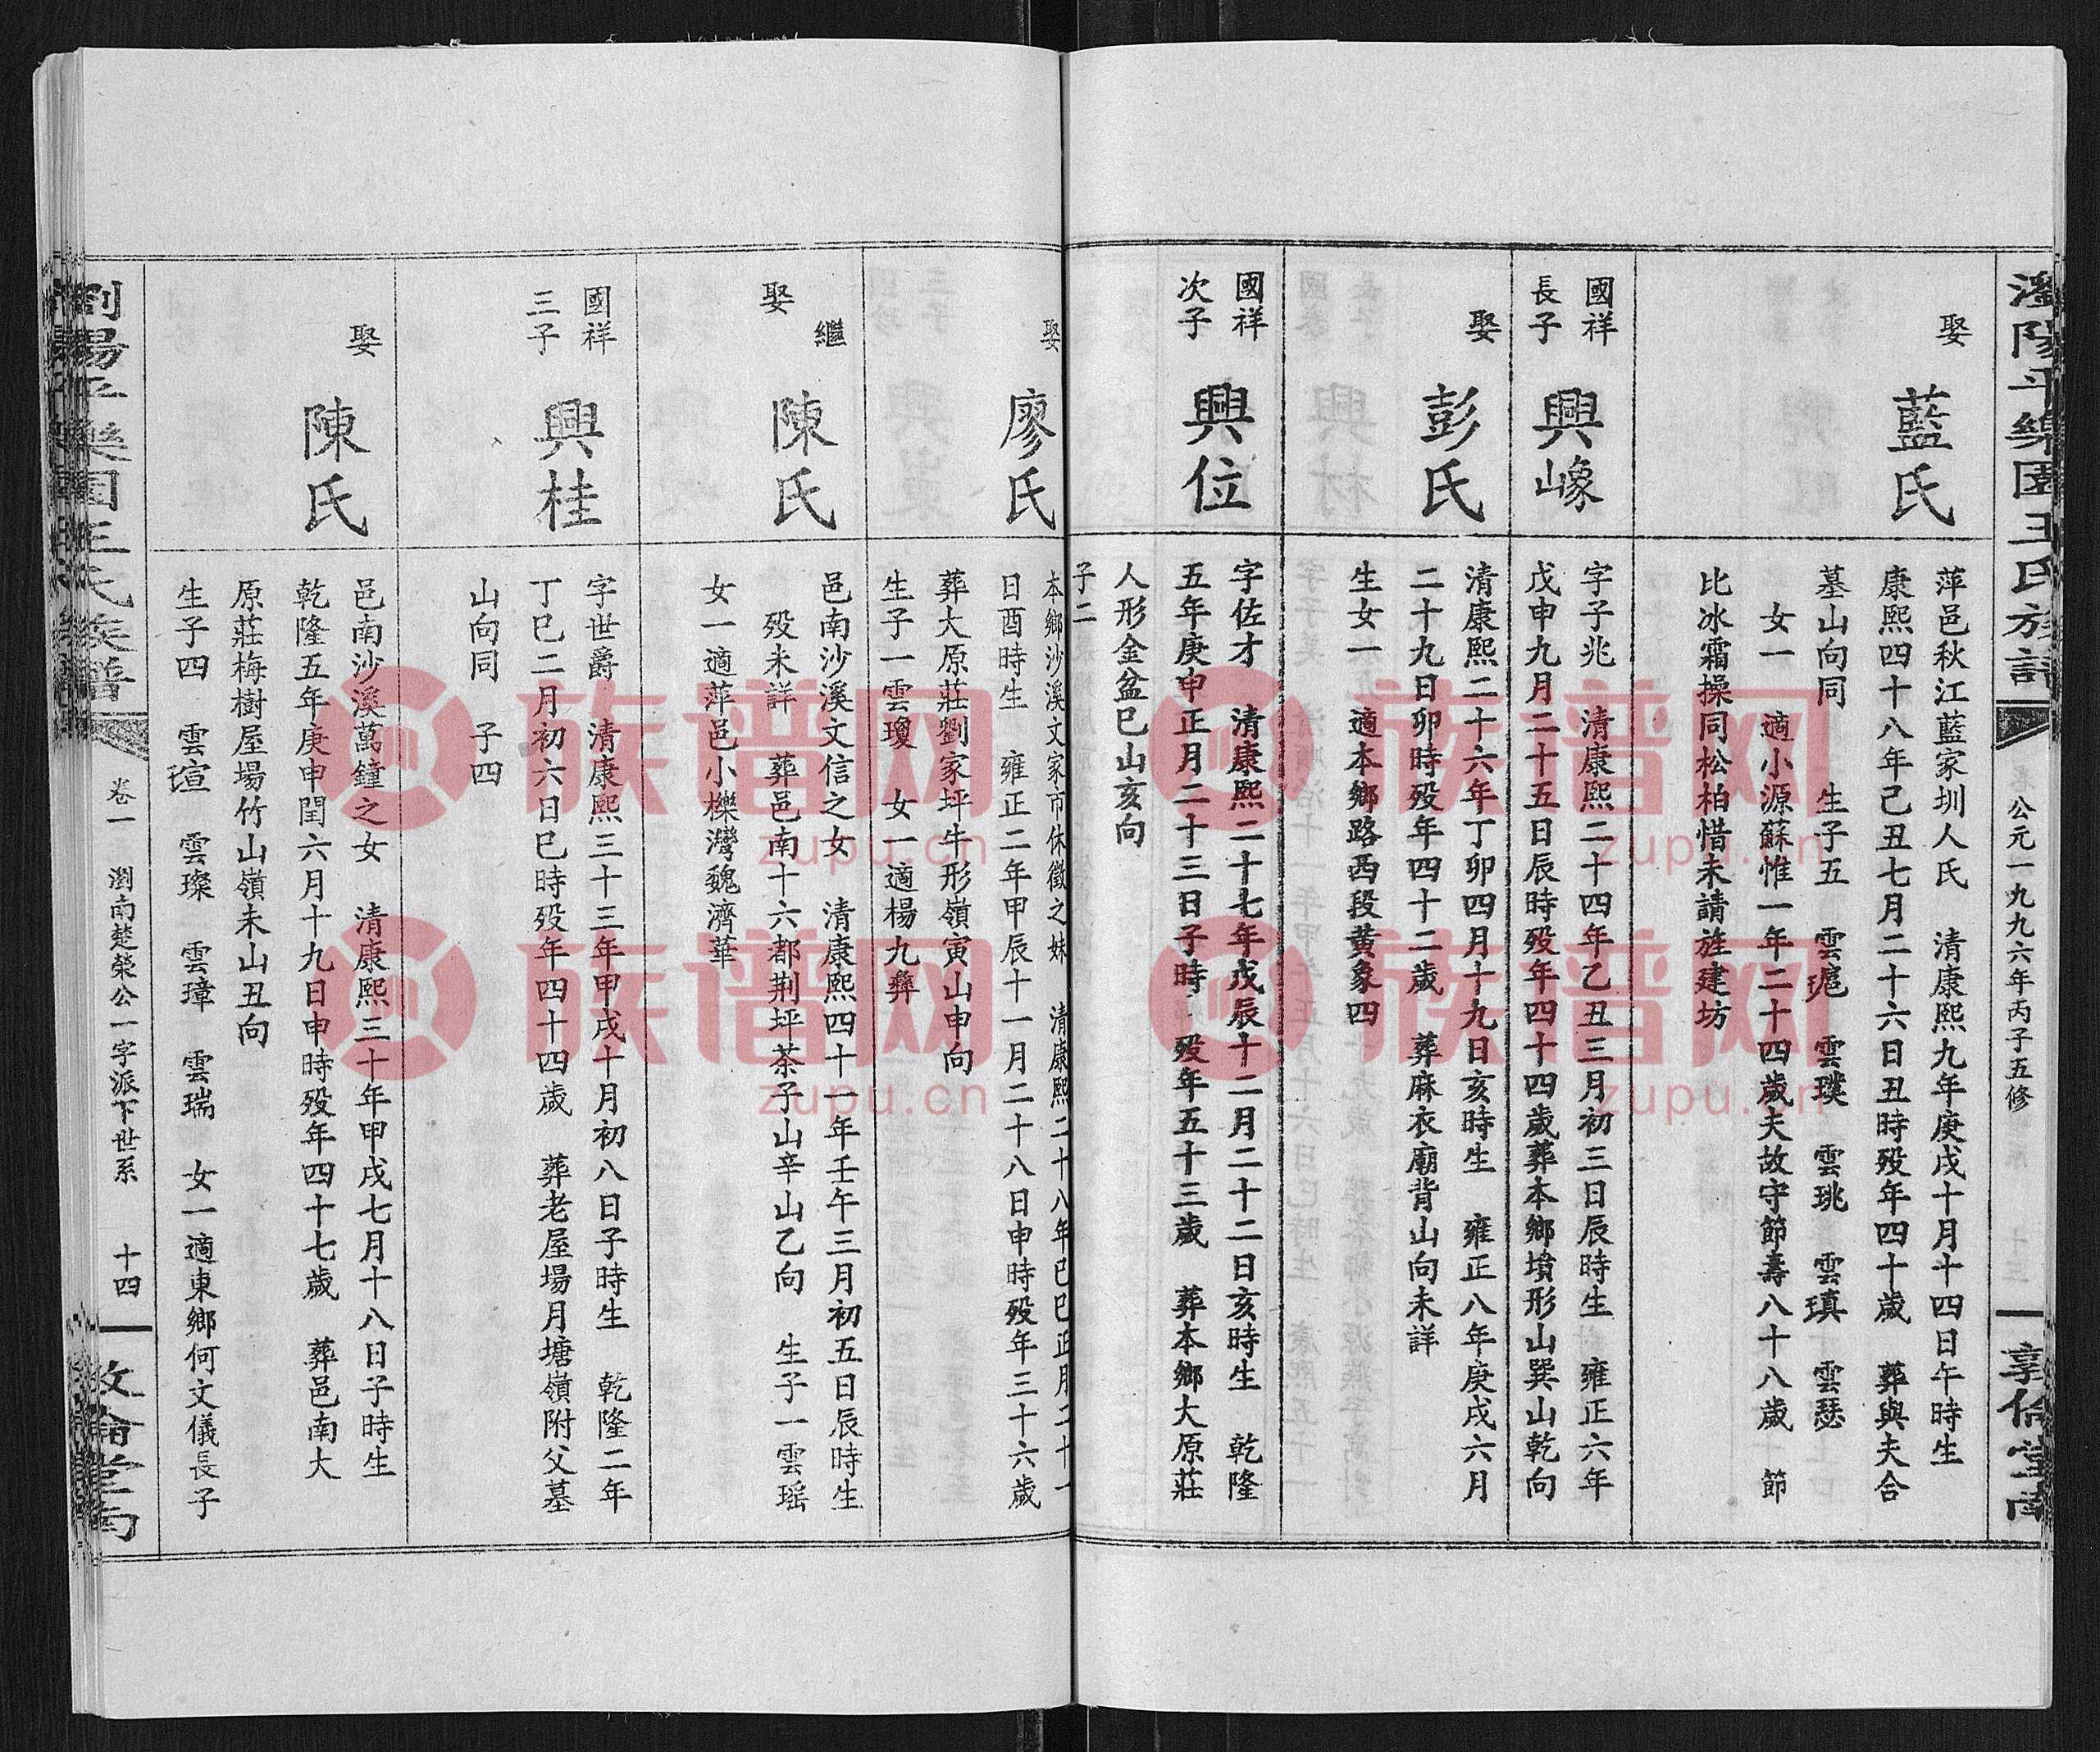 瀏陽平樂園王氏族譜
公元一九九六年丙子五修
享倫堂南
娶
藍氏
萍邑秋江藍家圳人氏　清康熙九年庚戌十月十四日午時生
康熙四十八年己丑七月二十六日丑時殁年四十歲　葬與夫合
墓山向同　　生子五　雲璁　雲璞　雲珧　雲瑱　雲瑟
女一　適小源蘇惟一年二十四歲夫故守節壽八十八歲　節
比冰霜操同松柏惜未請旌建坊
國祥
長子
興嶑
字子兆　清康熙二十四年乙丑三月初三日辰時生　雍正六年
戊申九月二十五日辰時殁年四十四歲葬本鄉墳形山巽山乾向
娶
彭氏
清康熙二十六年丁卯四月十九日亥時生　雍正八年庚戌六月
二十九日卯時殁年四十二歲　葬麻衣廟背山向未詳
生女一　適本鄉路西段黄象四
國祥
次子
興位
字佐才　清康熙二十七年戊辰十二月二十二日亥時生　乾隆
五年庚申正月二十三日子時　殁年五十三歲　葬本鄉大原莊
人形金盆巳山亥向
子二
娶
廖氏
本鄉沙溪文家市休徵之妹　清康熙二十八年己巳正月二十一
日酉時生　雍正二年甲辰十一月二十八日申時殁年三十六歲
葬大原莊劉家坪牛形嶺寅山申向
生子一雲瓊　女一適楊九彝
繼
娶
陳氏
邑南沙溪文信之女　清康熙四十一年壬午三月初五日辰時生
殁未詳　葬邑南十六都荆坪茶子山辛山乙向　生子一雲瑶
女一適萍邑小櫟灣魏濟華
國祥
三子
興桂
字世爵　清康熙三十三年甲戌十月初八日子時生　乾隆二年
丁巳二月初六日巳時殁年四十四歲　葬老屋場月塘嶺附父墓
山向同　子四
娶
陳氏
邑南沙溪萬鐘之女　清康熙三十年甲戌七月十八日子時生
乾隆五年庚申閏六月十九日申時殁年四十七歲　葬邑南大
原莊梅樹屋場竹山嶺未山丑向
生子四　雲瑄　雲璨　雲璋　雲瑞　女一適東鄉何文儀長子
瀏陽平樂園王氏族譜
卷一　瀏南楚榮公一字派下世系　十四
族谱网
zupu.cn
族谱网
zupu.cn
族谱网
zupu.cn
族谱网
zupu.cn